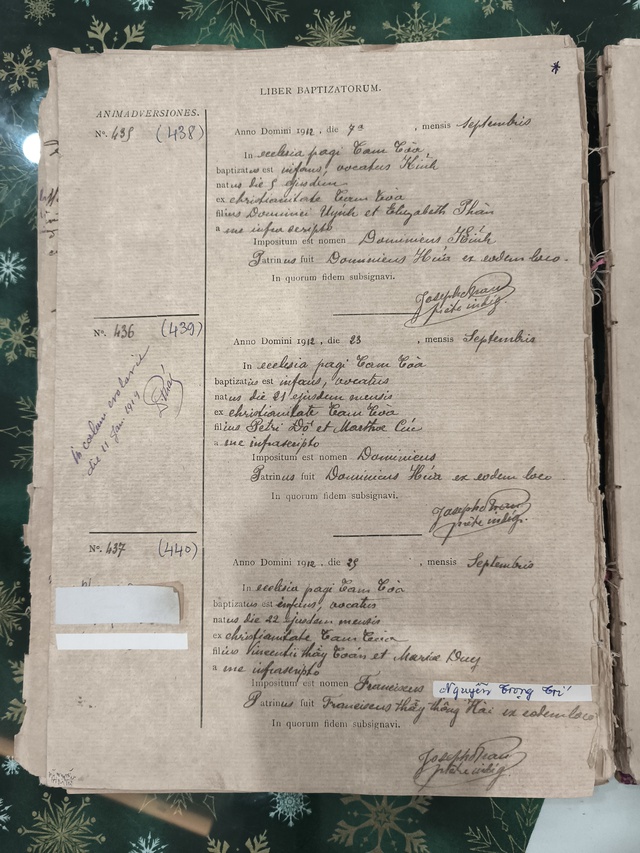 LIBER BAPTIZATORUM.
*
ANIMADVERSIONES.
Nº. 435 (438)
Anno Domini 1912, die 7ª, mensis Septembris
In ecclesia pagi Tam Tòa
baptizatus est infans, vocatus Kính
natus die 5 ejusdem
ex christianitate Tam Tòa
filius Dominici Uýnh et Elizabeth Phàn
a me infra scripto
Impositum est nomen Dominicus Kính
Patrinus fuit Dominicus Hứa ex eodem loco.
In quorum fidem subsignavi.
Joseph Tran
prêtre indig.
Nº. 436 (439)
in cœlum evolavit
die 11 Jan 1914
Anno Domini 1912, die 23, mensis Septembris
In ecclesia pagi Tam Tòa
baptizatus est infans, vocatus
natus die 21 ejusdem mensis
ex christianitate Tam Toa
filius Petri Dô et Martha Cúc
a me infrascripto
Impositum est nomen Dominicus
Patrinus fuit Dominicus Hứa ex eodem loco.
In quorum fidem subsignavi.
Joseph Tran
prêtre indig.
Nº. 437 (440)
Anno Domini 1912, die 25, mensis Septembris
In ecclesia pagi Tam Tòa
baptizatus est infans, vocatus
natus die 22 ejusdem mensis
ex christianitate Tam Tòa
filius Vincentii thầy Toản et Maria Duy
a me infrascripto
Impositum est nomen Franciscus Nguyễn Trọng Trí
Patrinus fuit Franciscus thầy thông Hài ex eodem loco
In quorum fidem subsignavi.
Joseph Tran
prêtre indig.